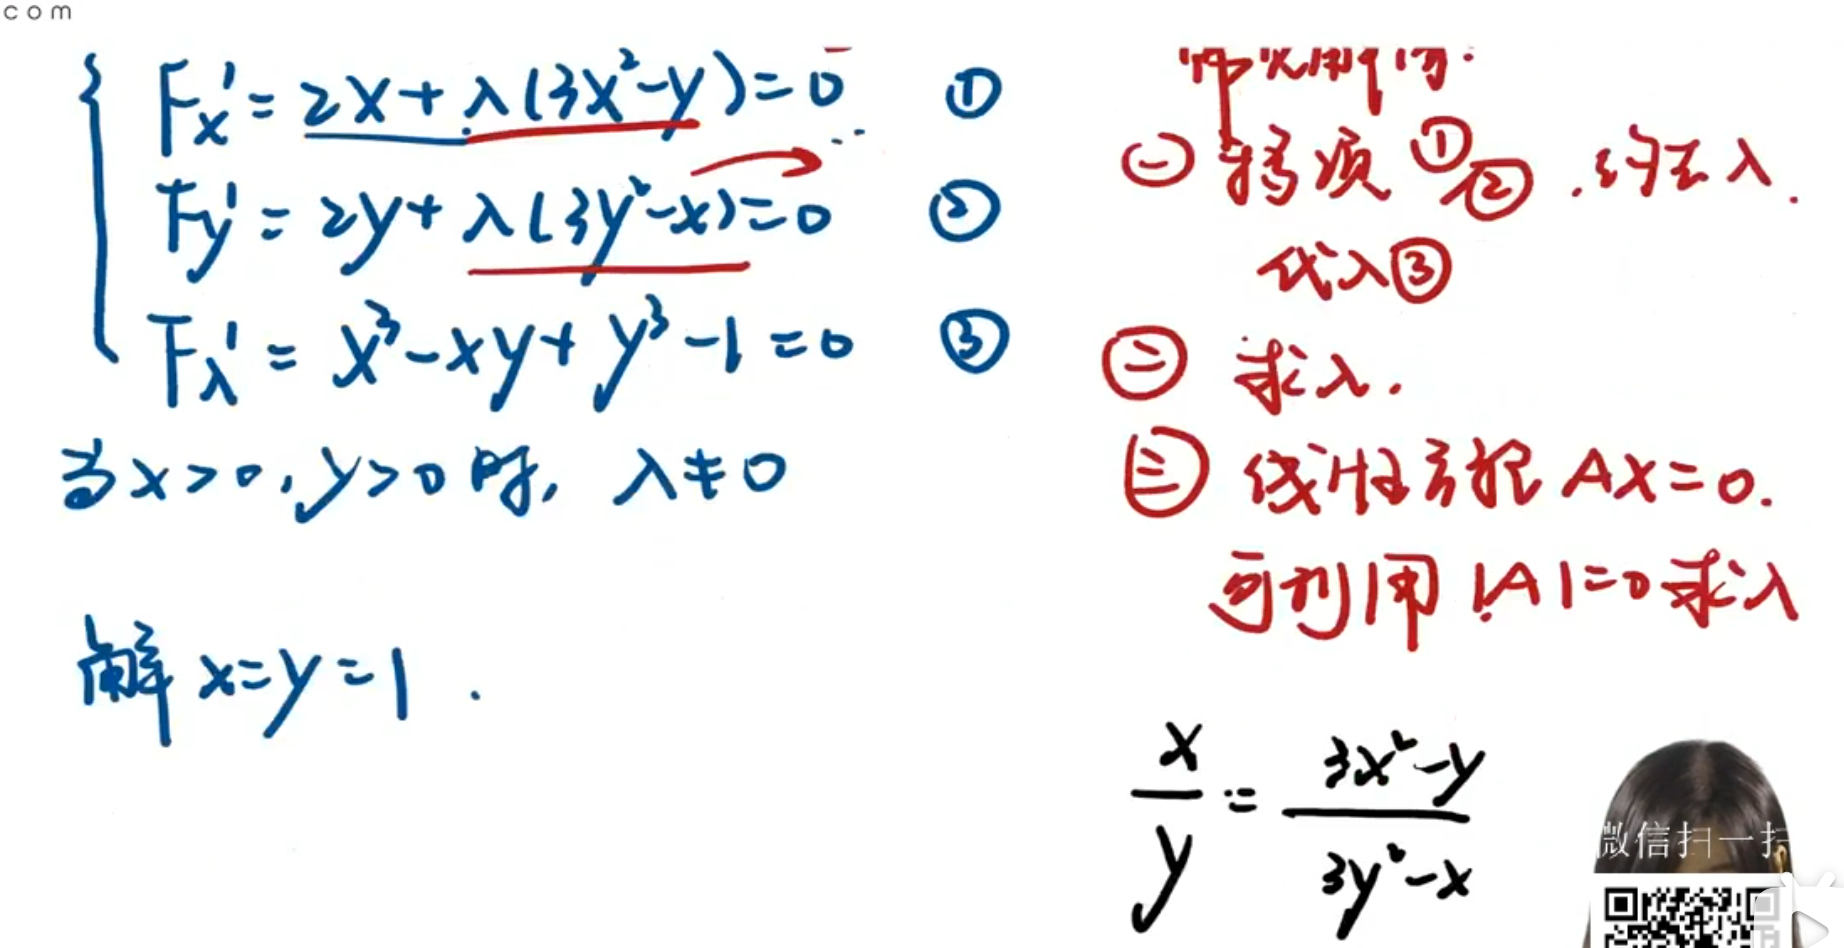 com
F'x = 2x + λ(3x²-y) = 0 ①
F'y = 2y + λ(3y²-x) = 0 ②
F'λ = x³-xy+y³-1=0 ③
当x>0,y>0时, λ≠0
解 x=y=1.
㊀ 移项 ①/②,约去λ.
代入③
㊁ 求λ.
㊂ 线性方程 AX=0.
可利用 |A|=0求λ
x/y = (3x²-y)/(3y²-x)
微信扫一扫